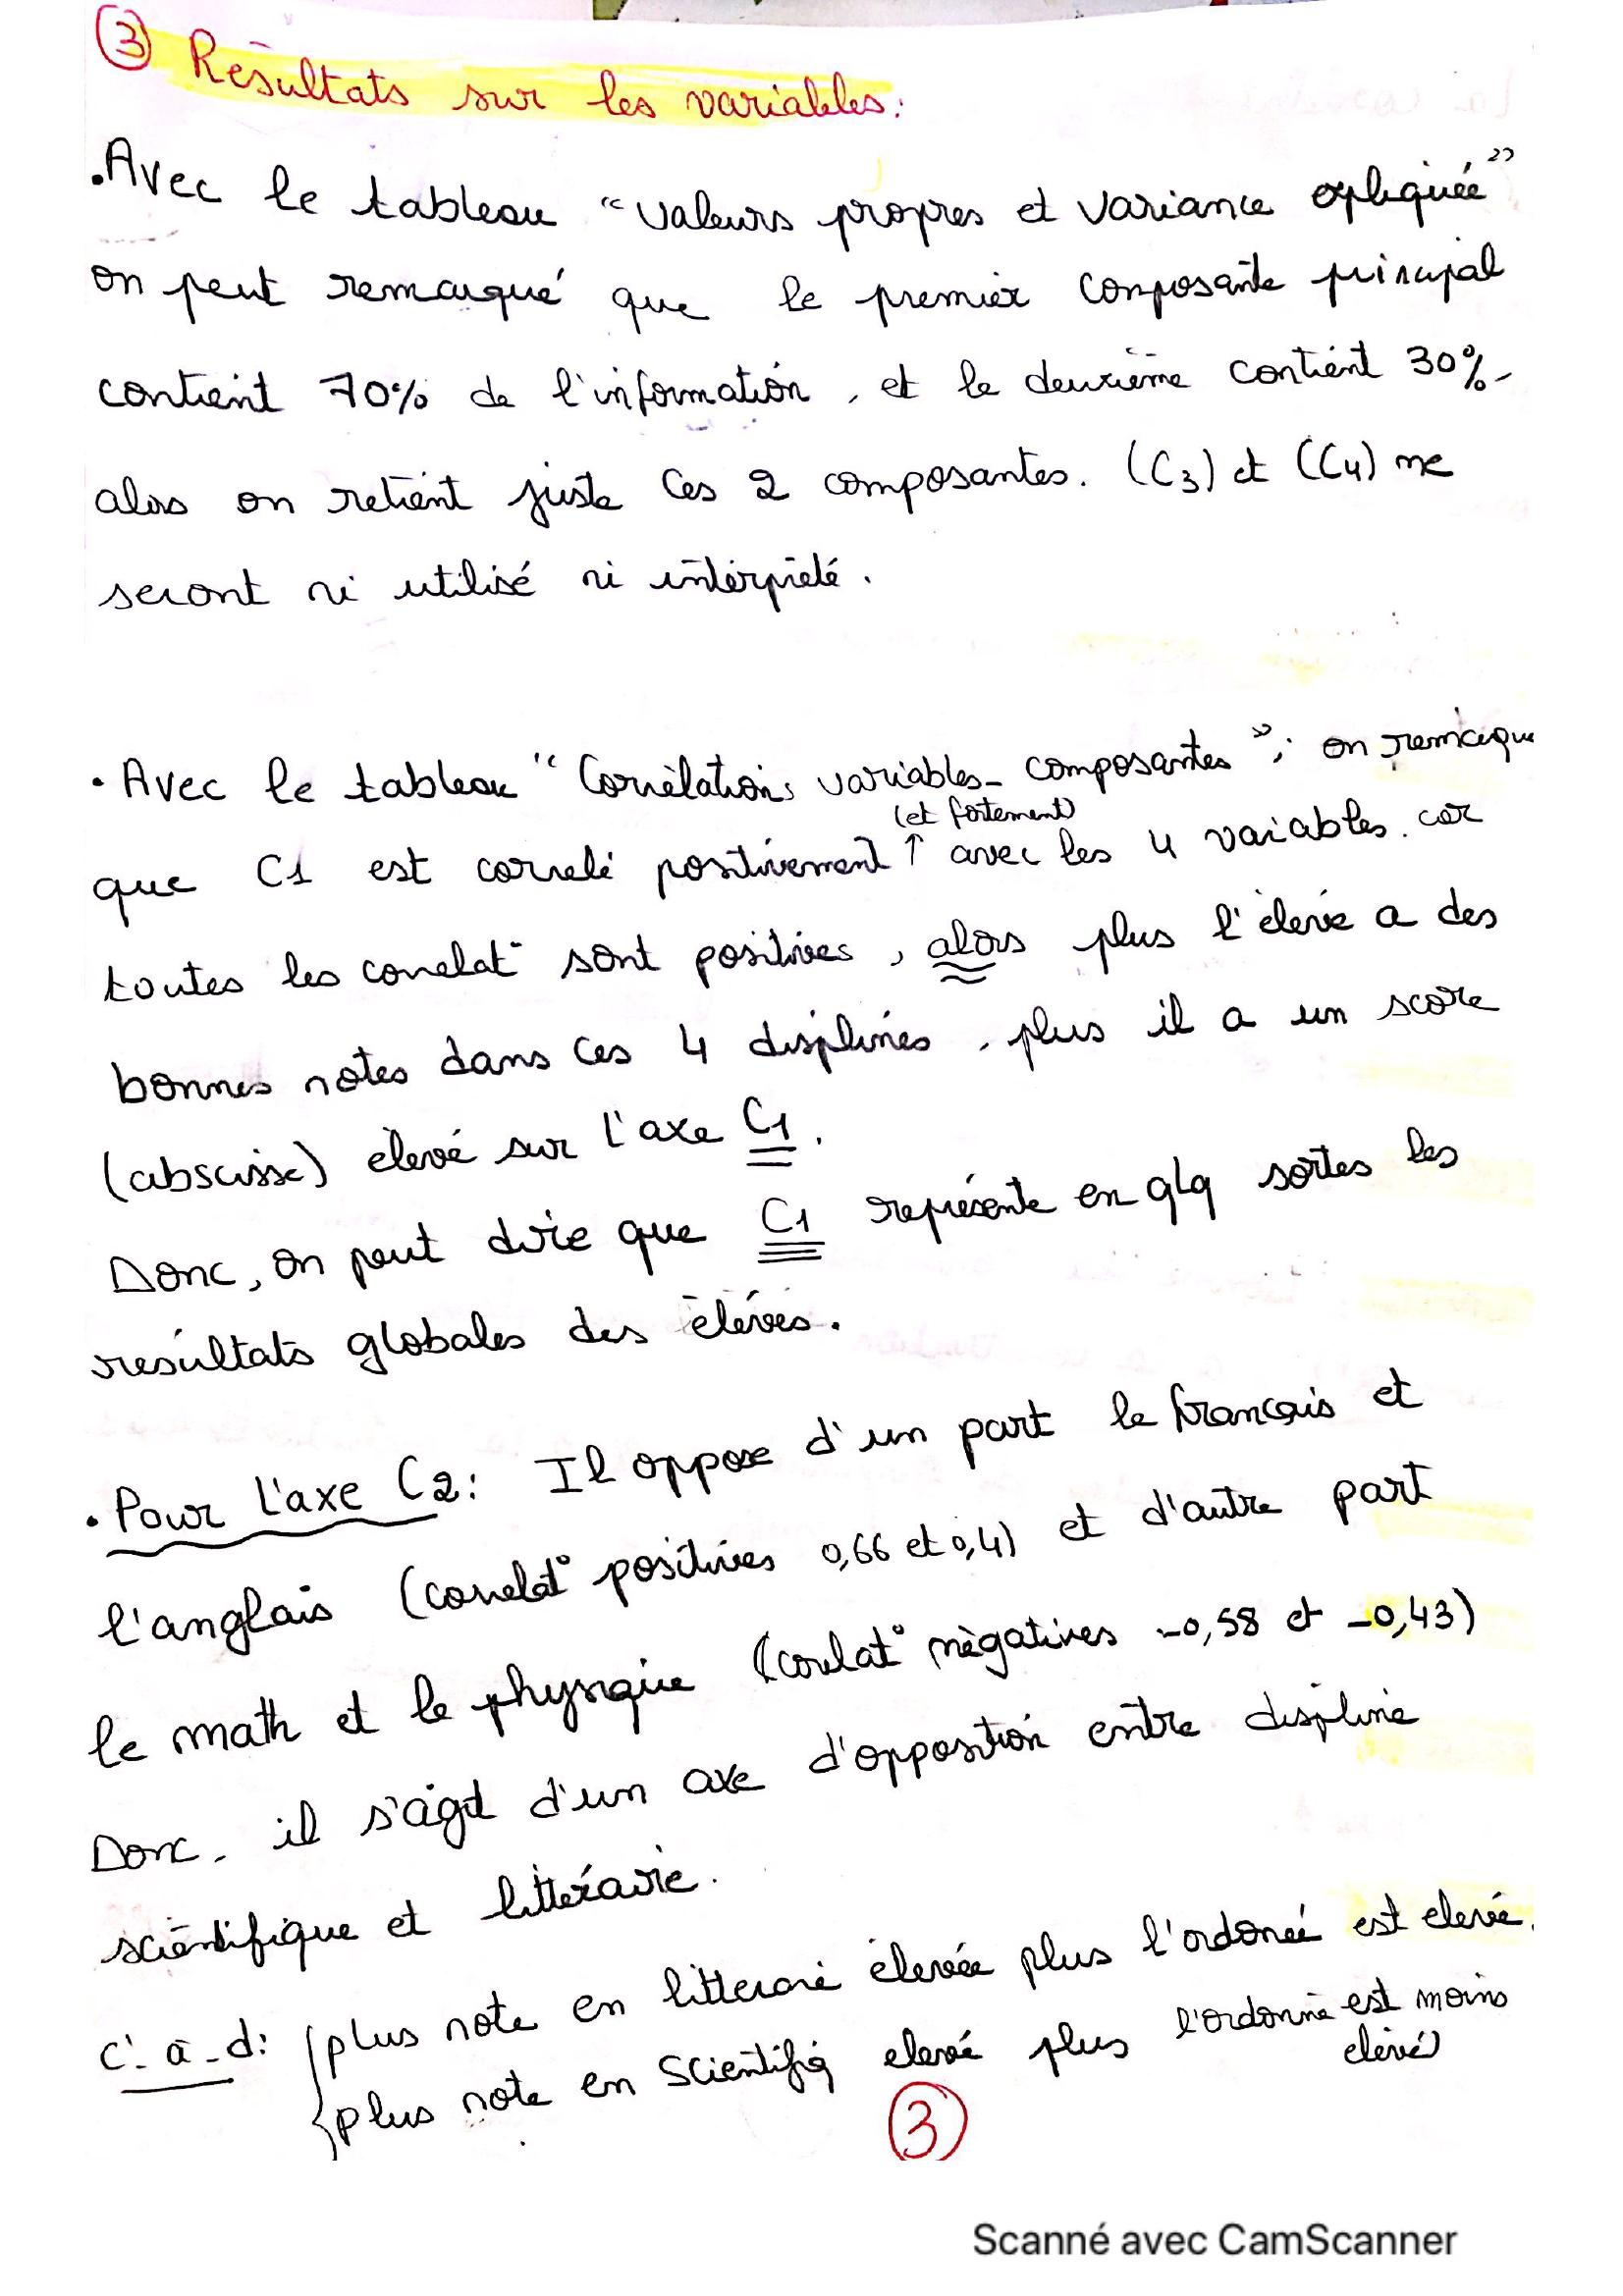 ③ Résultats sur les variables:
• Avec le tableau "valeurs propres et variance expliquée"
on peut remarqué que le premier composante principal
contient 70% de l'information, et le deuxième contient 30%.
alors on retient juste ces 2 composantes. (C3) et (C4) ne
seront ni utilisé ni intérprété.
• Avec le tableau "Corrélations variables-composantes"; on remarque
(et fortement)
que C1 est correlé positivement ↑ avec les 4 variables. car
toutes les correlat° sont positives, alors plus l'élevé a des
bonnes notes dans ces 4 displines, plus il a un score
(abscisse) élevé sur l'axe C1.
Donc, on peut dire que C1 représente en qlq sortes les
resultats globales des élèves.
• Pour l'axe C2: Il oppose d'un part le français et
l'anglais (correlat° positives 0,66 et 0,4) et d'autre part
le math et le physique (corelat° négatives -0,58 et -0,43)
Donc, il s'agit d'un axe d'opposition entre displine
scientifique et littéraire.
c'-à-d: { plus note en litteraire élevée plus l'ordonée est elevée.
plus note en scientifiq elevé plus l'ordonnée est moins
élevé
③
Scanné avec CamScanner